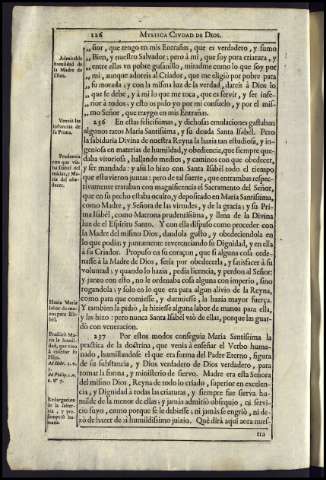 226 MYSTICA CIVDAD DE DIOS.
ñor, que tengo en mis Entrañas, que es verdadero, y sumo
Bien, y nuestro Salvador: pero à mì, que soy pura criatura, y
entre ellas vn pobre gusanillo, miradme como lo que soy por
mì, aunque adoreis al Criador, que me eligiò por pobre para
su morada; y con la misma luz de la verdad, dareis à Dios lo
que se debe, y à mì lo que me toca, que es servir, y ser infe-
rior à todos: y esto os pido yo por mi consuelo, y por el mis-
mo Señor, que traygo en mis Entrañas.
236 En estas felicissimas, y dichosas emulaciones gastaban
algunos ratos Maria Santissima, y su deuda Santa Isabèl. Pero
la sabiduria Divina de nuestra Reyna la hazia tan estudiosa, y in-
geniosa en materias de humildad, y obediencia, que siempre que-
daba vitoriosa, hallando medios, y caminos con que obedecer,
y ser mandada: y assi lo hizo con Santa Isabèl todo el tiempo
que estuvieron juntas: pero de tal suerte, que entrambas respec-
tivamente trataban con magnificencia el Sacramento del Señor,
que en su pecho estaba oculto, y depositado en Maria Santissima,
como Madre, y Señora de las virtudes, y de la gracia: y su Pri-
ma Isabèl, como Matrona prudentissima, y llena de la Divina
luz de el Espiritu Santo. Y con ella dispuso como proceder con
la Madre del mismo Dios, dandola gusto, y obedeciendola en
lo que podia: y juntamente reverenciando su Dignidad, y en ella
à su Criador. Propuso en su coraçon, que si alguna cosa orde-
nasse à la Madre de Dios, seria por obedecerla, y satisfacer à su
voluntad: y quando lo hazia, pedia licencia, y perdon al Señor:
y junto con esto, no le ordenaba cosa alguna con imperio, sino
rogandola: y solo en lo que era para algun alivio de la Reyna,
como para que comiesse, y durmiesse, la hazia mayor fuerça.
Y tambien la pidiò, la hiziesse alguna labor de manos para ella,
y las hizo: pero nunca Santa Isabèl vsò de ellas, porque las guar-
dò con veneracion.
237 Por estos modos conseguia Maria Santissima la
practica de la doctrina, que venia à enseñar el Verbo huma-
nado, humillandose el que era forma del Padre Eterno, figura
de su substancia, y Dios verdadero de Dios verdadero, para
tomar la forma, y ministerio de siervo. Madre era esta Señora
del mismo Dios, Reyna de todo lo criado, superior en excelen-
cia, y Dignidad à todas las criaturas, y siempre fue sierva hu-
milde de la menor de ellas; y jamàs admitiò obsequio, ni ser-
vicio suyo, como porque se le debiesse; ni jamàs se engriò, ni de-
xò de hazer de sì humildissimo juizio. Què dirà aqui aora nues-
tra
Admirable
humildad de
la Madre de
Dios.
Prudencia